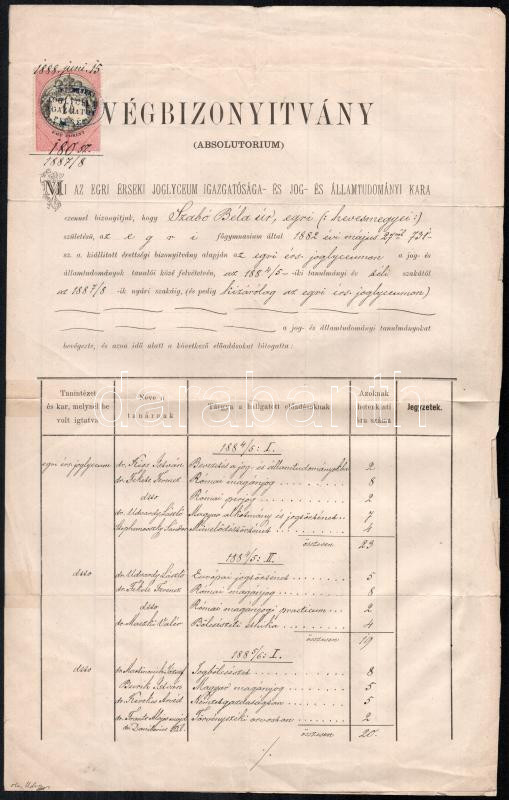 1888. juni. 15
VÉGBIZONYITVÁNY
(ABSOLUTORIUM)
180 sz.
1887/8
MI AZ EGRI ÉRSEKI JOGLYCEUM IGAZGATÓSÁGA- ÉS JOG- ÉS ÁLLAMTUDOMÁNYI KARA
ezennel bizonyitjuk, hogy Szabó Béla úr, egri (: hevesmegyei :)
születésü, az egri főgymnasium által 1882 évi május 27től 731-
sz. a. kiállitott érettségi bizonyitvány alapján az egri érs. joglyceumon a jog- és
államtudományok tanulói közé felvétetvén, az 1884/5-iki tanulmányi év téli szakától
az 1887/8-ik nyári szakáig, (és pedig kizárólag az egri érs. joglyceumon)
a jog- és államtudományi tanulmányokat
bevégezte, és azon idő alatt a következő előadásokat látogatta:
darabanth
Tanintézet és kar, melynél be volt igtatva
Neve a tanárnak
Tárgya a hallgatott előadásoknak
Azoknak hetenkénti óra száma
Jegyzetek.
1884/5: I.
egri érs. joglyceum dr. Kiss István Bevezetés a jog- és államtudományokba 2
dr. Fekete Ferencz Római magánjog 8
dtto Római perjog 2
dr. Udvardy László Magyar alkotmány és jogtörténet 7
Művelődéstörténet 4
összesen 23
1884/5: II.
dtto dr. Udvardy László Európai jogtörténet 5
dr. Fekete Ferencz Római magánjog 8
dtto Római magánjogi practicum 2
dr. Maczki Valér Bölcsészeti ethika 4
összesen 19
1885/6: I.
dtto dr. Martinovich József Jogbölcsészet 8
István Magyar magánjog 5
Nemzetgazdaságtan 5
Törvényszéki orvostan 2
összesen 20.
./.